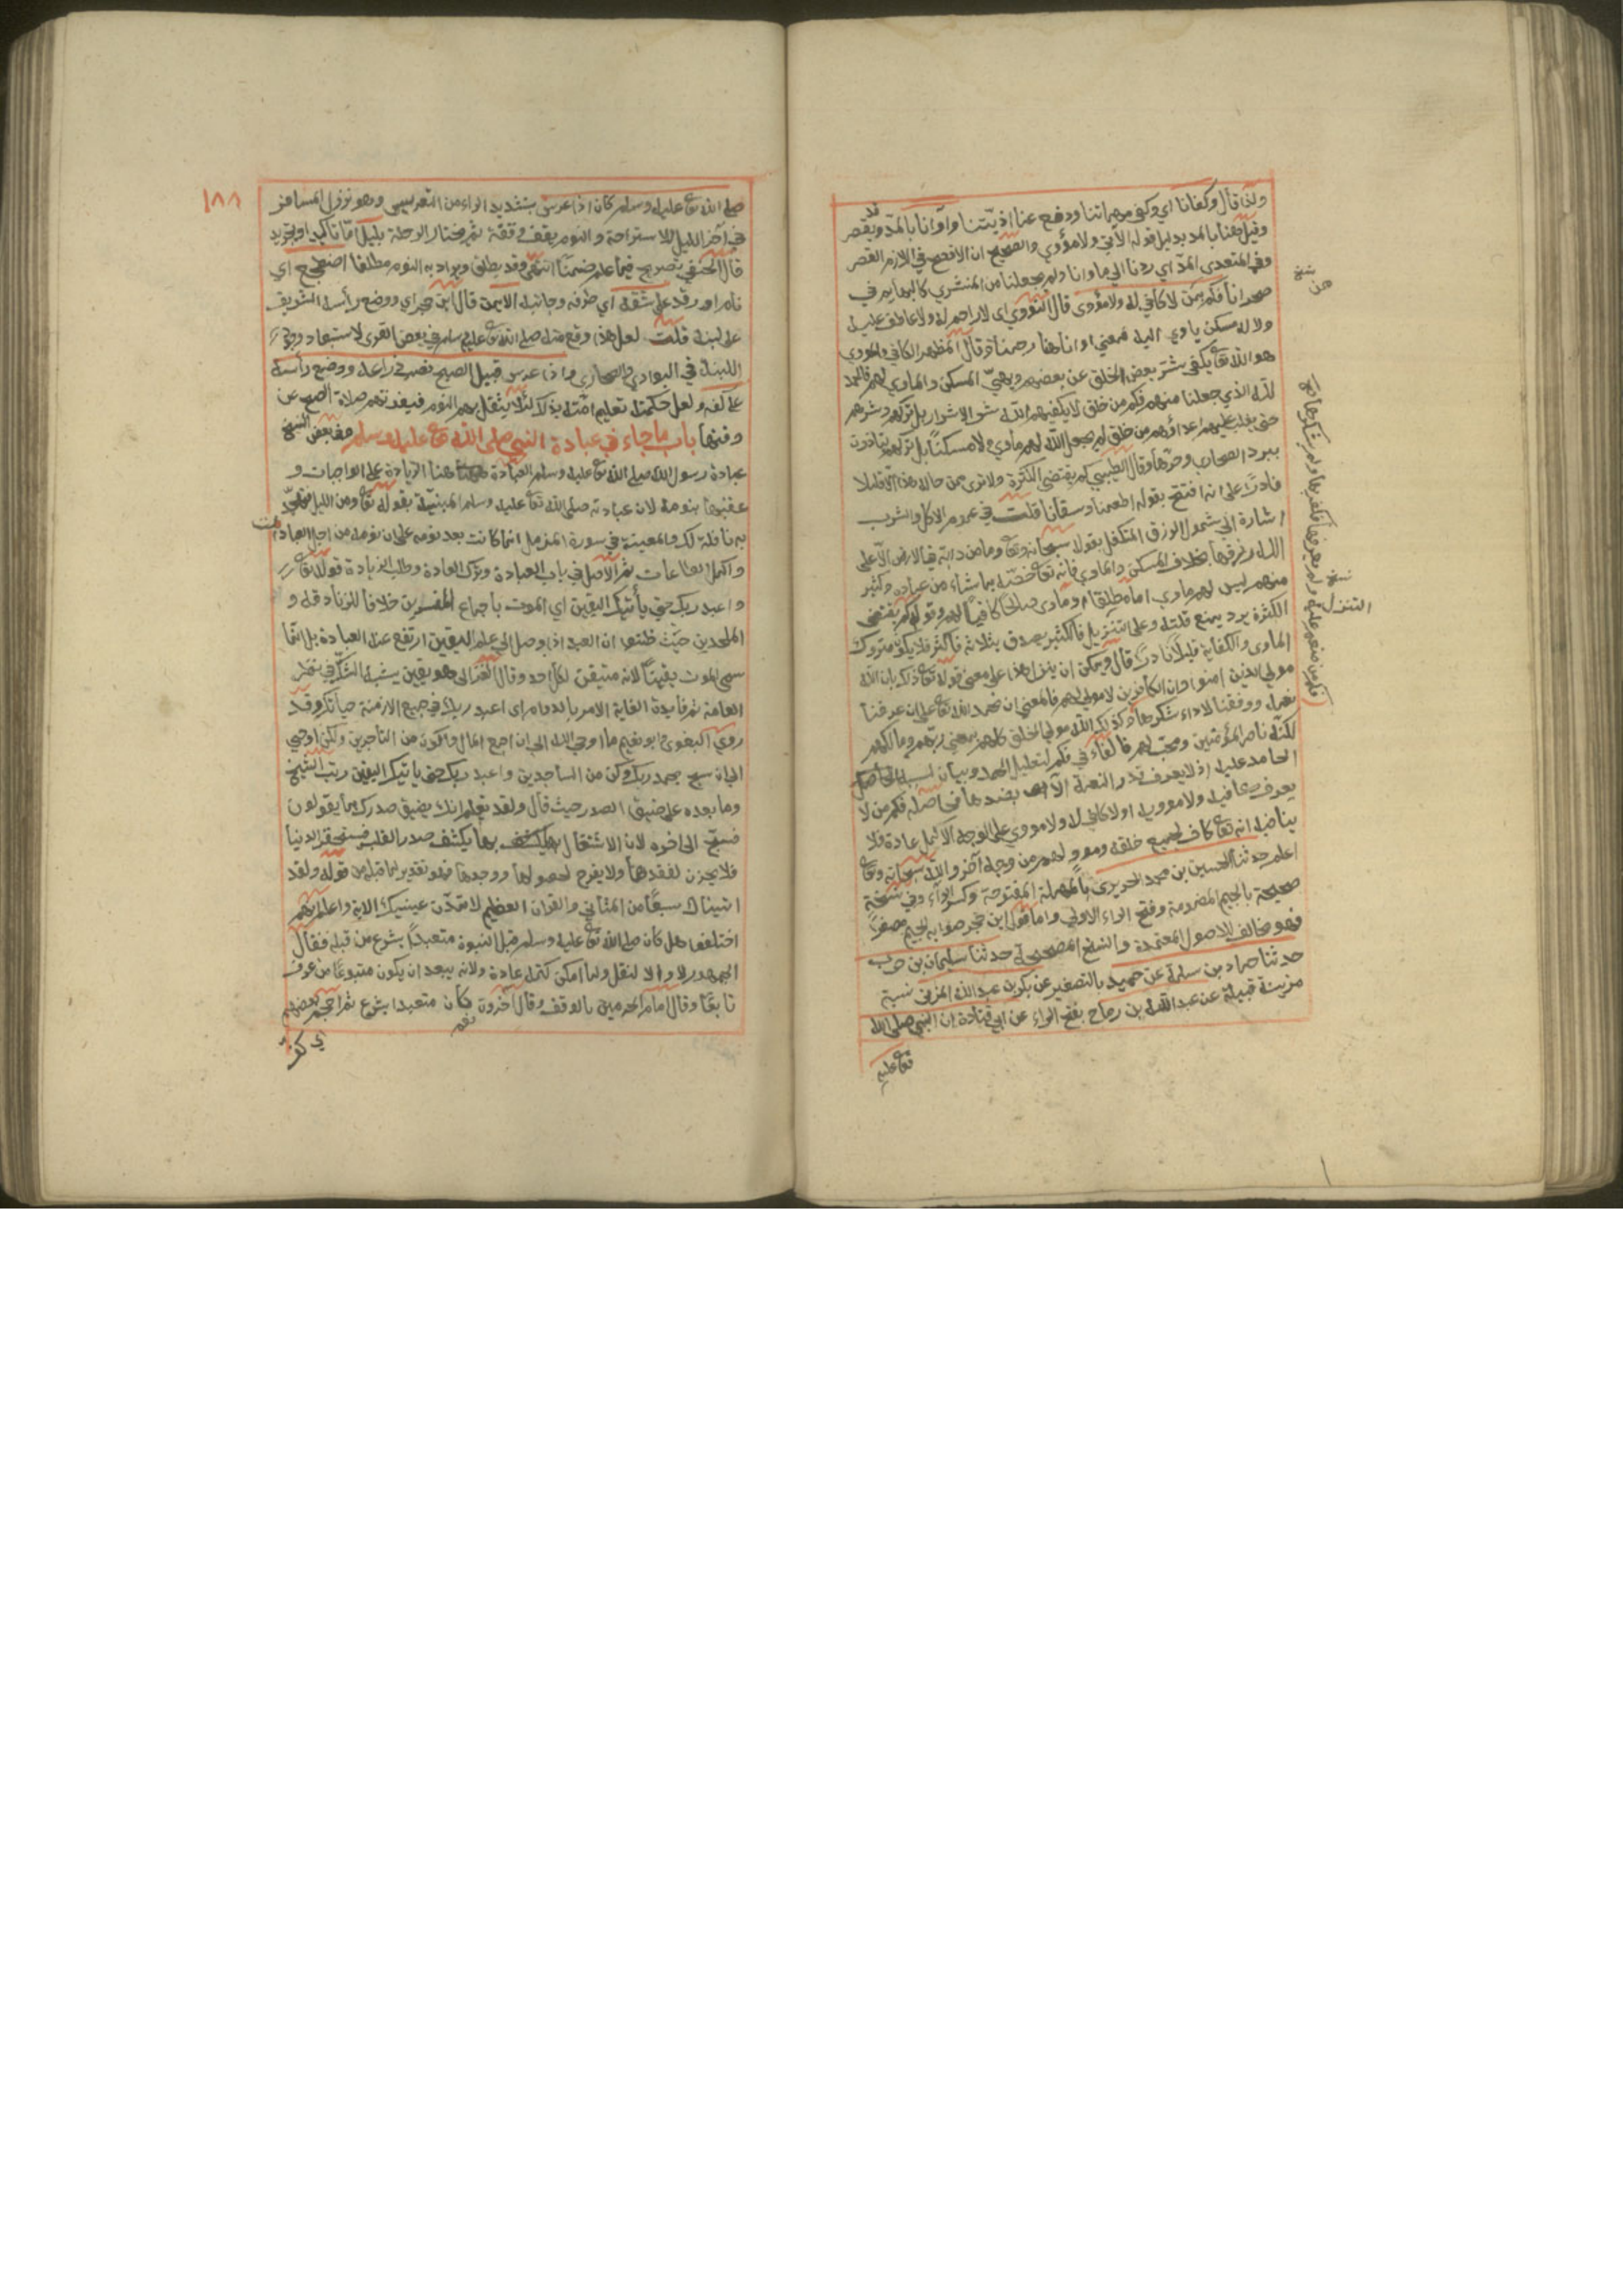 ولذا قال وكفانا اي وكفى مهماتنا ودفع عنا اذياتنا وآوانا بالمد ويقصر
وقيل هنا بالمد بدليل قوله الآتي ولا مؤوي والصحيح ان الافصح في اللازم القصر
وفي المتعدي المد اي ردنا الى مأوانا ولم يجعلنا من المنتشرين كالبهايم في
صحرانا فكم ممن لا كافي له ولا مؤوي قال النووي اي لا راحم له ولا عاطف عليه
ولا له مسكن ياوي اليه فمعنى اوانا هنا رحمنا وقال المظهر الكافي والمووي
هو الله تعا يكفي شر بعض الخلق عن بعضهم ويهيئ المسكن والماوي لهم فالحمد
لله الذي جعلنا منهم فكم من خلق لا يكفيهم الله شر الاشرار بل تركهم وشرهم
حتى يغلب عليهم اعداؤهم وكم من خلق لم يجعل الله لهم ماوي ولا مسكنا بل تركهم يتاذون
ببرد الصحاري وحرها وقال الطيبي كم يقتضي الكثرة ولا نرى ممن حاله هذا الا قليلا
نادرا على انه افتتح بقوله اطعمنا وسقانا قلت في عموم الاكل والشرب
اشارة الى شمول الرزق المتكفل بقوله سبحانه وتعا وما من دابة في الارض الا على
الله رزقها بخلاف المسكن والماوي فانه تعا خصه بما شاء من عباده وكثير
منهم ليس لهم ماوي اما مطلقا او ماوى صالحا كافيا لهم وقوله كم يقتضي
الكثرة يرد بمنع قلته وعلى التنزيل فالكثير يصدق بثلاثة فاكثر فلا يكون متروك
الماوى والكفاية قليلا نادرا قال ويمكن ان ينزل هذا على معنى قوله تعا ذلك بان الله
مولى الذين امنوا وان الكافرين لا مولى لهم فالمعنى ان نحمد الله تعا على ان عرفنا
نعمه ووفقنا لاداء شكرها وكذلك الله مولى الخلق كلهم بمعنى ربهم ومالكهم
لكنه ناصر المؤمنين ومحب لهم فالفاء في فكم لتعليل الحمد وبيان لسببه الحامل
الحامد عليه اذ لا يعرف قدر النعمة الا بضدها فحاصله فكم من لا
يعرف كافيه ولا مووية او لا كافي له ولا مووي على الوجه الاكمل عادة فلا
ينافيه انه تعا كاف لجميع خلقه ومووٍ لهم من وجه آخر والله سبحانه وتعا
اعلم حدثنا الحسين بن محمد الحريري بالمهملة المفتوحة وكسر الراء وفي نسخة
صحيحة بالجيم المضمومة وفتح الراء الاولى واما قول ابن حجر صوابه بالجيم مصغرا
فهو مخالف للاصول المعتمدة والنسخ المصححة حدثنا سليمان بن حرب
حدثنا حماد بن سلمة عن حميد بالتصغير عن بكر بن عبد الله المزني نسبة
مزينة قبيلة عن عبد الله بن رباح بفتح الراء عن ابي قتادة ان النبي صلى الله
تعا عليه
نسخ
من
نسخ
التنزل
١٨٨
صلى الله تعا عليه وسلم كان اذا عرس بتشديد الراء من التعريس وهو نزول المسافر
في آخر الليل للاستراحة والنوم يقف وقفة ثم يختار الرحلة بليل اما تاكيد او تجريد
قال الحنفي تصريح فيما علم ضمنا انتهى وقد يطلق ويراد به النوم مطلقا اضطجع اي
نام او رقد على شقه اي طرفه وجانبه الايمن قال ابن حجر اي ووضع رأسه الشريف
على لبنة قلت لعل هذا وقع منه صلى الله تعا عليه وسلم في بعض القرى لاستبعاد وجود
اللبنة في البوادي والصحارى واذا عرس قبيل الصبح نصب ذراعه ووضع رأسه
على كفه ولعل حكمته تعليم امته بذلك لئلا يثقل بهم النوم فيفوتهم صلاة الصبح عن
وقتها باب ما جاء في عبادة النبي صلى الله تعا عليه وسلم وفي بعض النسخ
عبادة رسول الله صلى الله تعا عليه وسلم العبادة هنا الزيادة على الواجبات و
عقبها بنومه لان عبادته صلى الله تعا عليه وسلم المبنية بقوله تعا ومن الليل فتهجد
به نافلة لك والمعينة في سورة المزمل انما كانت بعد نومه على ان نومه من اجل العبادات
واكمل الطاعات ثم الاصل في باب العبادة وترك العادة وطلب الزيادة قوله تعا
واعبد ربك حتى يأتيك اليقين اي الموت باجماع المفسرين خلافا للزنادقة و
الملحدين حيث ظنوا ان العبد اذا وصل الى علم اليقين ارتفع عنه العبادة بل انما
سمي الموت يقينا لانه متيقن لكل احد وقال الغزالي هو يقين يشبه الشك في نظر
العامة ثم فايدة الغاية الامر بالدوام اي اعبد ربك في جميع الازمنة حياتك وقد
روى البغوي وابو نعيم ما اوحي الله الي ان اجمع المال واكون من التاجرين ولكن اوحي
الي ان سبح بحمد ربك وكن من الساجدين واعبد ربك حتى ياتيك اليقين رتب التسبيح
وما بعده على ضيق الصدر حيث قال ولقد نعلم انك يضيق صدرك بما يقولون
فسبح الى اخره لان الاشتغال بها يكشف صدر القلب فيستحقر الدنيا
فلا يحزن لفقدها ولا يفرح لحصولها ووجودها فهو تقدير لما قبله من قوله ولقد
اتيناك سبعا من المثاني والقرآن العظيم لا تمدن عينيك الاية واعلم انهم
اختلفوا هل كان صلى الله تعا عليه وسلم قبل النبوة متعبدا بشرع من قبله فقال
الجمهور لا والا لنقل ولما امكن كتمه عادة ولانه يبعد ان يكون متبوعا من عرف
تابعا وقال امام الحرمين بالوقف وقال آخرون كان متعبدا بشرع ثم احجم بعضهم